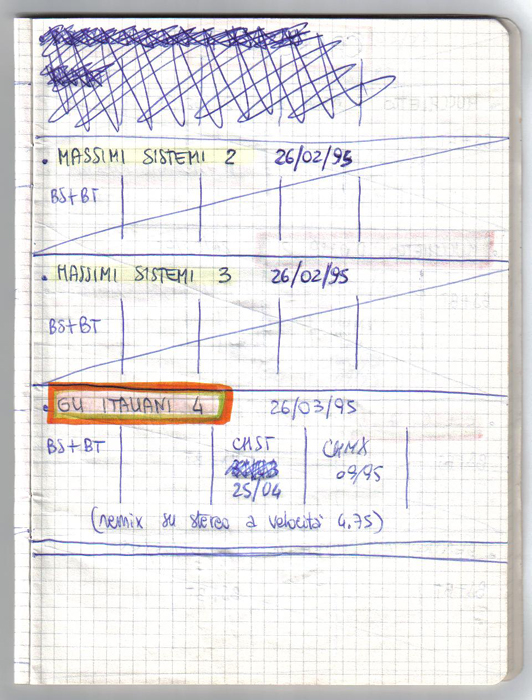 . MASSIMI SISTEMI 2 26/02/95
BS+BT
. MASSIMI SISTEMI 3 26/02/95
BS+BT
. GLI ITALIANI 4 26/03/95
BS+BT CHST CHMX
09/95
25/04
(remix su stereo a velocità 4.75)